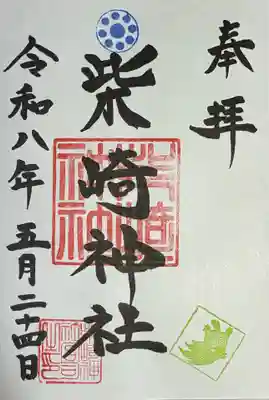 奉拝
柴崎神社
令和八年五月二十四日